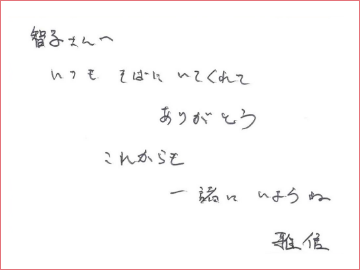 智子さんへ
いつも そばに いてくれて
ありがとう
これからも
一緒に いようね
雅信